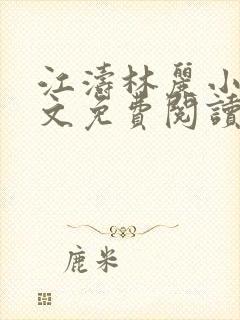 江濤林麗小
文免費閱讀
鹿米